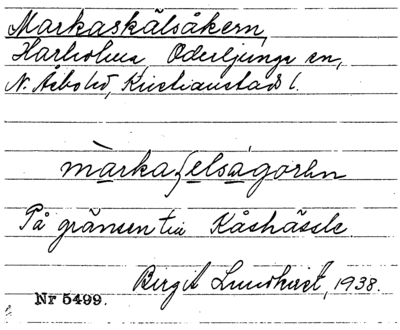 Markaskälsåkern,
Harholma, Oderljunga sn,
N. Åsbo hd, Kristianstads l.
På gränsen till Kåshässle
Birgit Lundkvist, 1938.
Nr 5499.